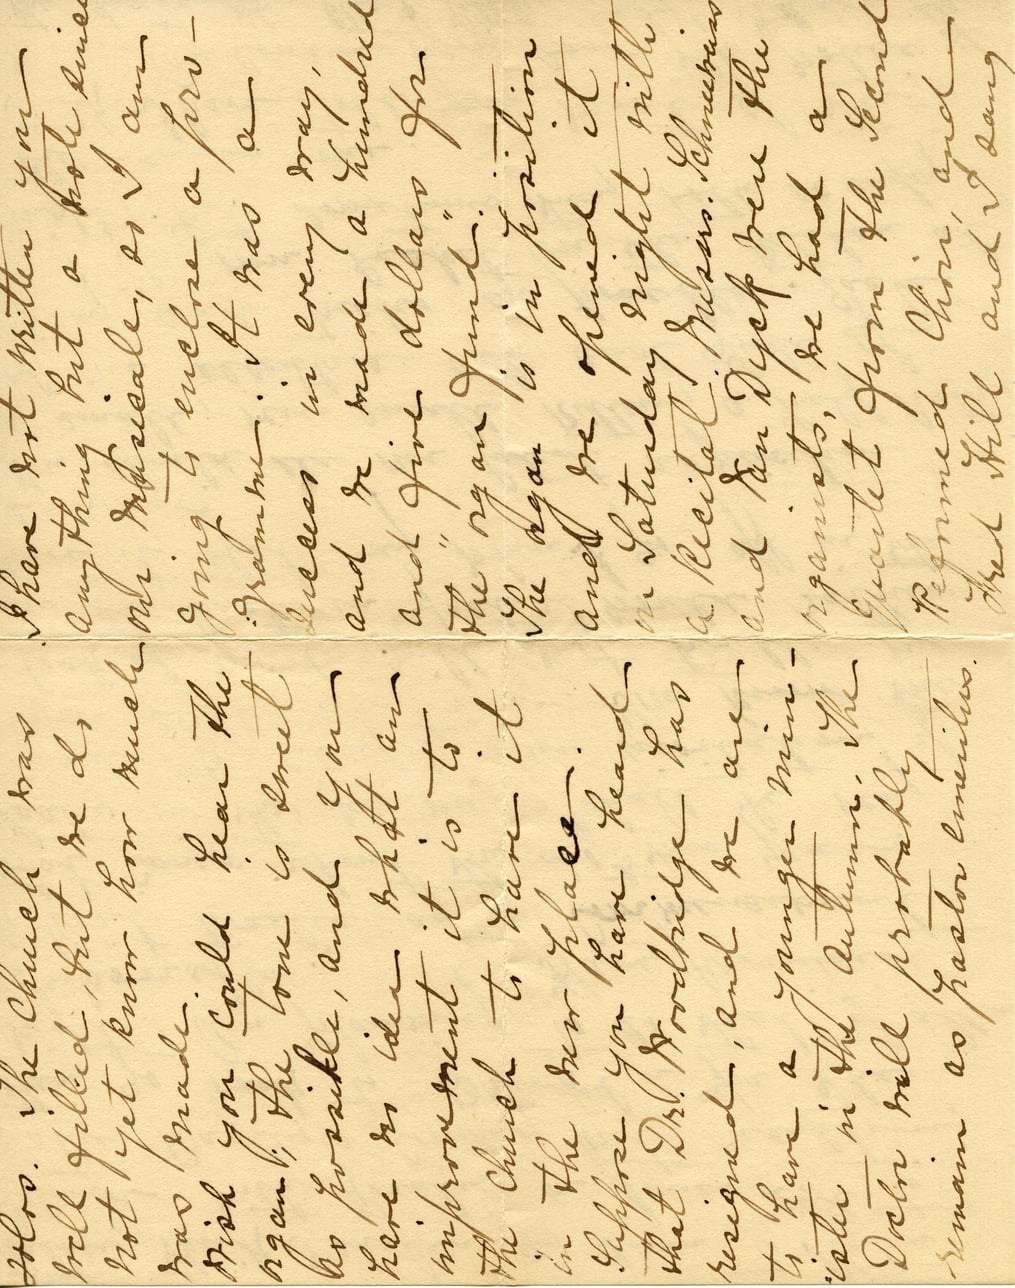 I have not written you
anything but a note since
our musicale, as I am
going to enclose a pro-
gramme. It was a
success in every way,
and we made a hundred
and five dollars for
the "organ fund."
The organ is in position
and we opened it
on Saturday night with
a recital. Messrs. Schneevais
and Van Dyck were the
organists, we had a
quartet from the Second
Reformed Choir, and
Fred Hill and I sang
solos. The Church was
well filled, but we do
not yet know how much
was made.
Wish you could hear the
organ; the tone is sweet
as possible, and you
have no idea what an
improvement it is to
the Church to have it
in the new place.
Suppose you have heard
that Dr. Woodbridge has
resigned, and we are
to have a younger min-
ister in the Autumn. The
Doctor will probably
remain as pastor emeritus.